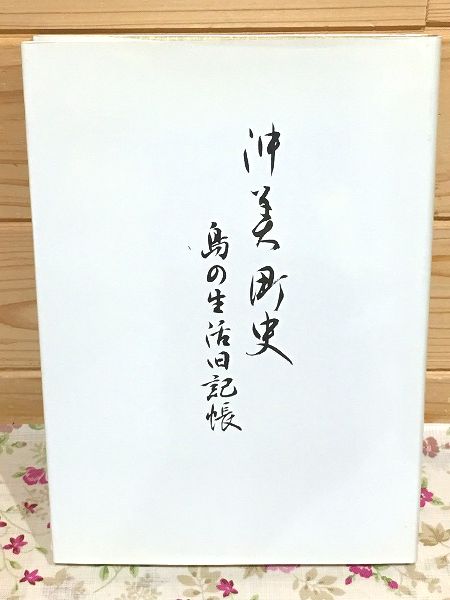 沖美町史
島の生活日記帳